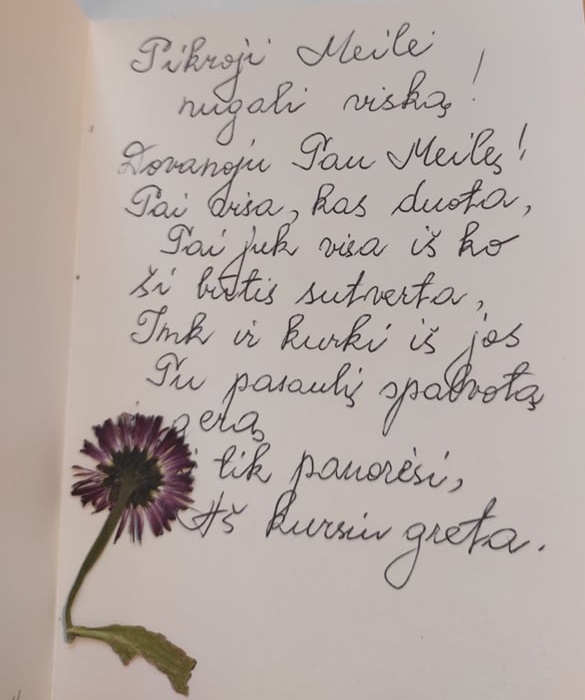 Tikroji Meilė
nugali viską!
Dovanoju Tau Meilę!
Tai visa, kas duota,
Tai juk visa iš ko
ši būtis sutverta,
Imk ir kurki iš jos
Tu pasaulį spalvotą
gerą
tik panorėsi,
Aš kursiu greta.